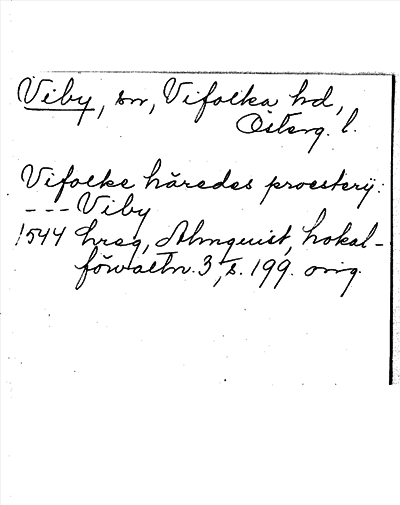 Viby, sn, Vifolka hd,
Österg. l.
Vifolke häredes proesterij:
--- Viby
1544 hrsg, Almquist, Lokal-
förvaltn. 3, s. 199. orig.